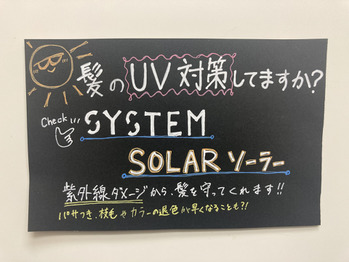 髪のUV対策してますか?
Check!!!
SYSTEM
SOLAR ソーラー
紫外線ダメージから、髪を守ってくれます!!
パサつき、枝毛やカラーの退色が早くなることも?!